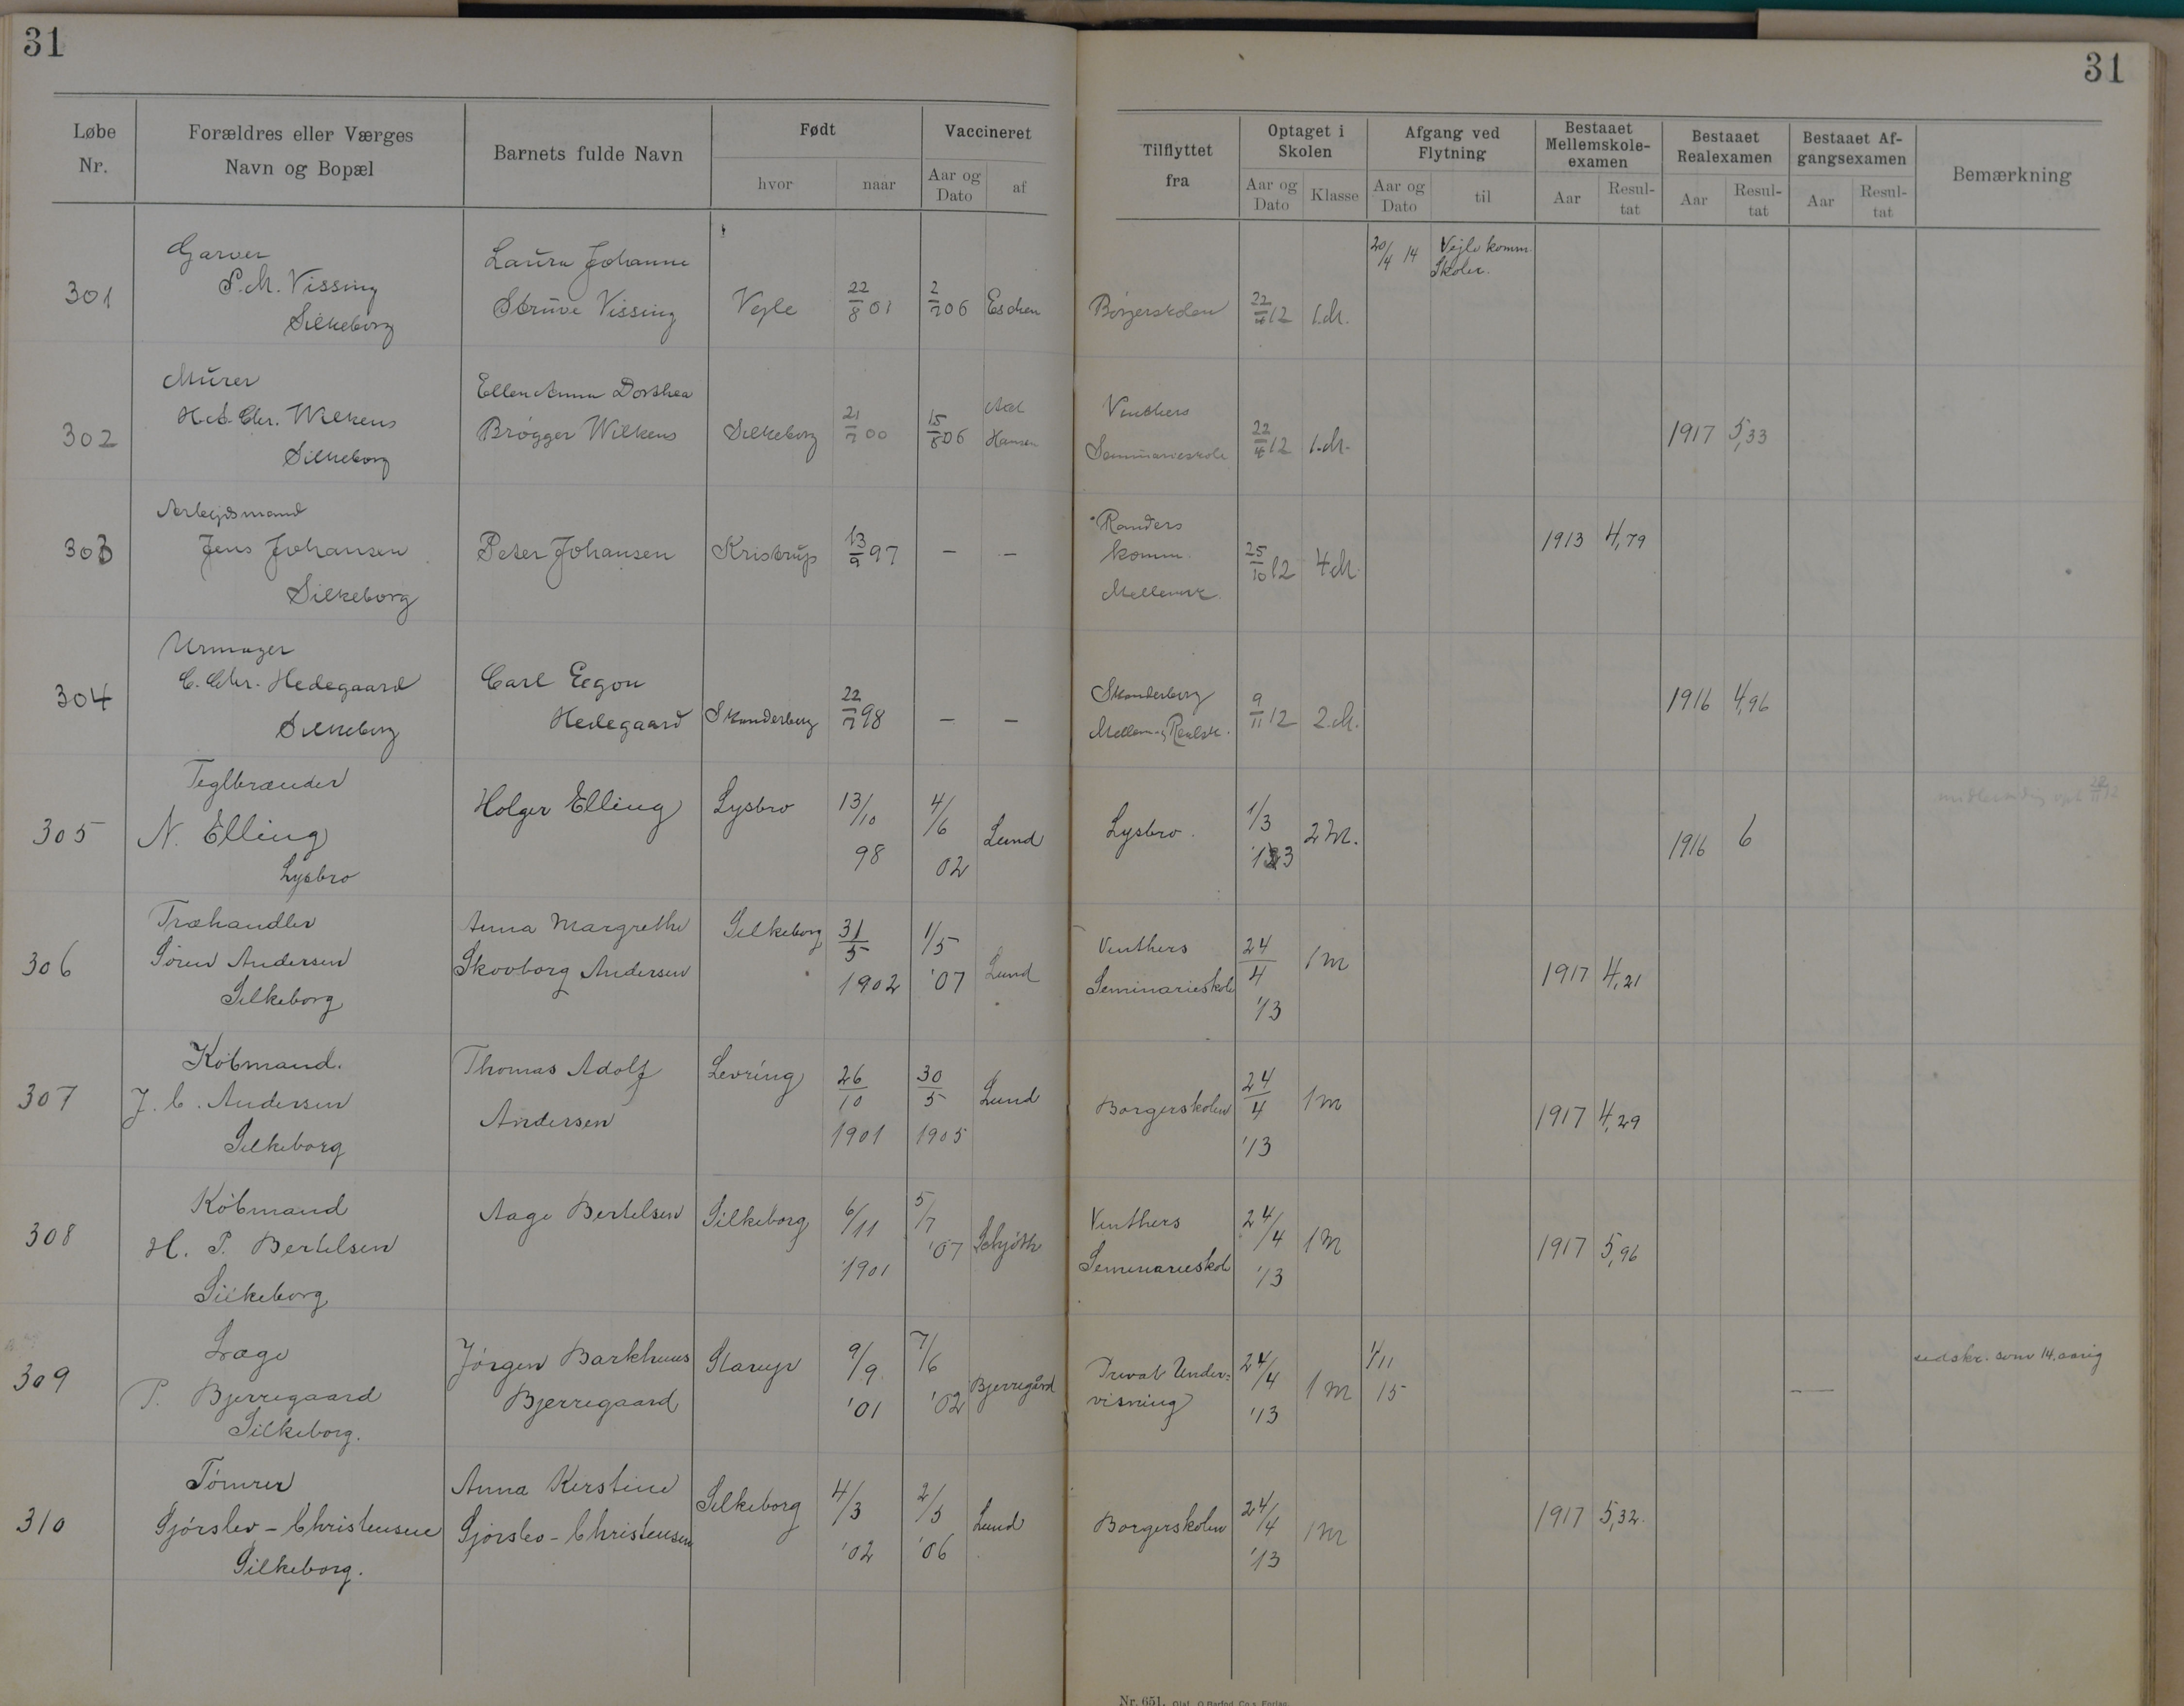 31
31
Løbe Nr.
Forældres eller Værges Navn og Bopæl
Barnets fulde Navn
Født
hvor
naar
Vaccineret
Aar og Dato
af
Tilflyttet fra
Optaget i Skolen
Aar og Dato
Klasse
Afgang ved Flytning
Aar og Dato
til
Bestaaet Mellemskole-examen
Aar
Resul-tat
Bestaaet Realexamen
Aar
Resul-tat
Bestaaet Af-gangsexamen
Aar
Resul-tat
Bemærkning
301
Garver
P. M. Vissing
Silkeborg
Laura Johanne
Struve Vissing
Vejle
22/8 01
2/7 06
Eschen
Borgerskolen
22/4 12
1. M.
20/4 14
Vejle komm.
Skoler.
302
Murer
Chr. Wilkens
Silkeborg
Ellen Anna Dorthea
Brøgger Wilkens
Silkeborg
21/7 00
15/8 06
Hansen
Vinthers
Seminarieskole
22/4 12
1. M.
1917
5,33
303
Arbejdsmand
Jens Johansen
Silkeborg
Peter Johansen
Kristrup
13/9 97
—
—
Randers
komm.
Mellemsk.
25/10 12
4 M.
1913
4,79
304
Urmager
C. Chr. Hedegaard
Silkeborg
Carl Egon
Hedegaard
Skanderborg
22/7 98
—
—
Skanderborg
Mellem- og Realsk.
9/11 12
2. M.
1916
4,96
305
Teglbrænder
N. Elling
Lysbro
Holger Elling
Lysbro
13/10
98
4/6
02
Lund
Lysbro.
1/3
'13
2 M.
1916
6
midlertidig opt. 22/11 12
306
Træhandler
Søren Andersen
Silkeborg
Anna Margrethe
Skovborg Andersen
Silkeborg
31/5
1902
1/5
'07
Lund
Vinthers
Seminarieskole
24/4
'13
1 M
1917
4,21
307
Købmand.
J. C. Andersen
Silkeborg
Thomas Adolf
Andersen
Levring
26/10
1901
30/5
1905
Lund
Borgerskolen
24/4
'13
1 M
1917
4,29
308
Købmand
H. P. Bertelsen
Silkeborg
Aage Bertelsen
Silkeborg
6/11
1901
5/7
'07
Schjøth
Vinthers
Seminarieskole
24/4
'13
1 M
1917
5,96
309
Læge
P. Bjerregaard
Silkeborg.
Jørgen Barkhuus
Bjerregaard
Starup
9/9
'01
7/6
'02
Bjerregård
Privat Under-
visning
24/4
'13
1 M
1/11
15
—
udskr. som 14 aarig
310
Tømrer
Gjørslev - Christensen
Silkeborg.
Anna Kirstine
Gjørslev - Christensen
Silkeborg
4/3
'02
2/5
'06
Lund
Borgerskolen
24/4
'13
1 M
1917
5,32.
Nr. 651.